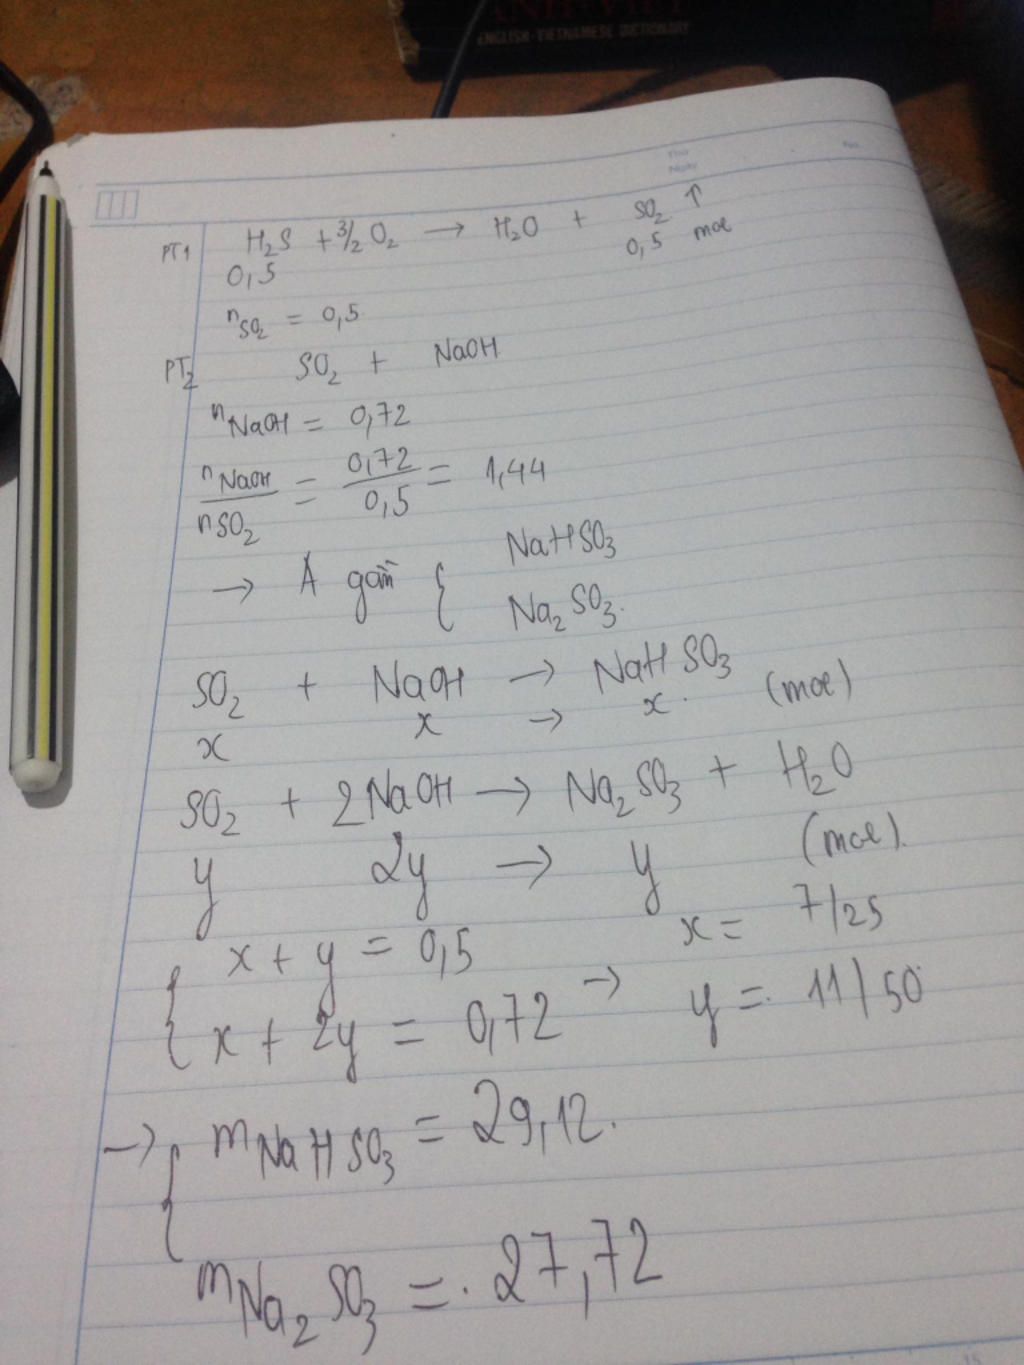 ANH-VIỆT
ENGLISH-VIETNAMESE DICTIONARY
No.
PT1 H₂S + 3/2 O₂ → H₂O + SO₂ ↑
0,5 0,5 mol
nSO₂ = 0,5
PT2 SO₂ + NaOH
nNaOH = 0,72
nNaOH/nSO₂ = 0,72/0,5 = 1,44
→ A gồm { NaHSO₃
Na₂SO₃.
SO₂ + NaOH → NaHSO₃
x x → x. (mol)
SO₂ + 2NaOH → Na₂SO₃ + H₂O
y 2y → y (mol).
{ x + y = 0,5 → x = 7/25
x + 2y = 0,72 y = 11/50
→ { mNaHSO₃ = 29,12.
mNa₂SO₃ = 27,72